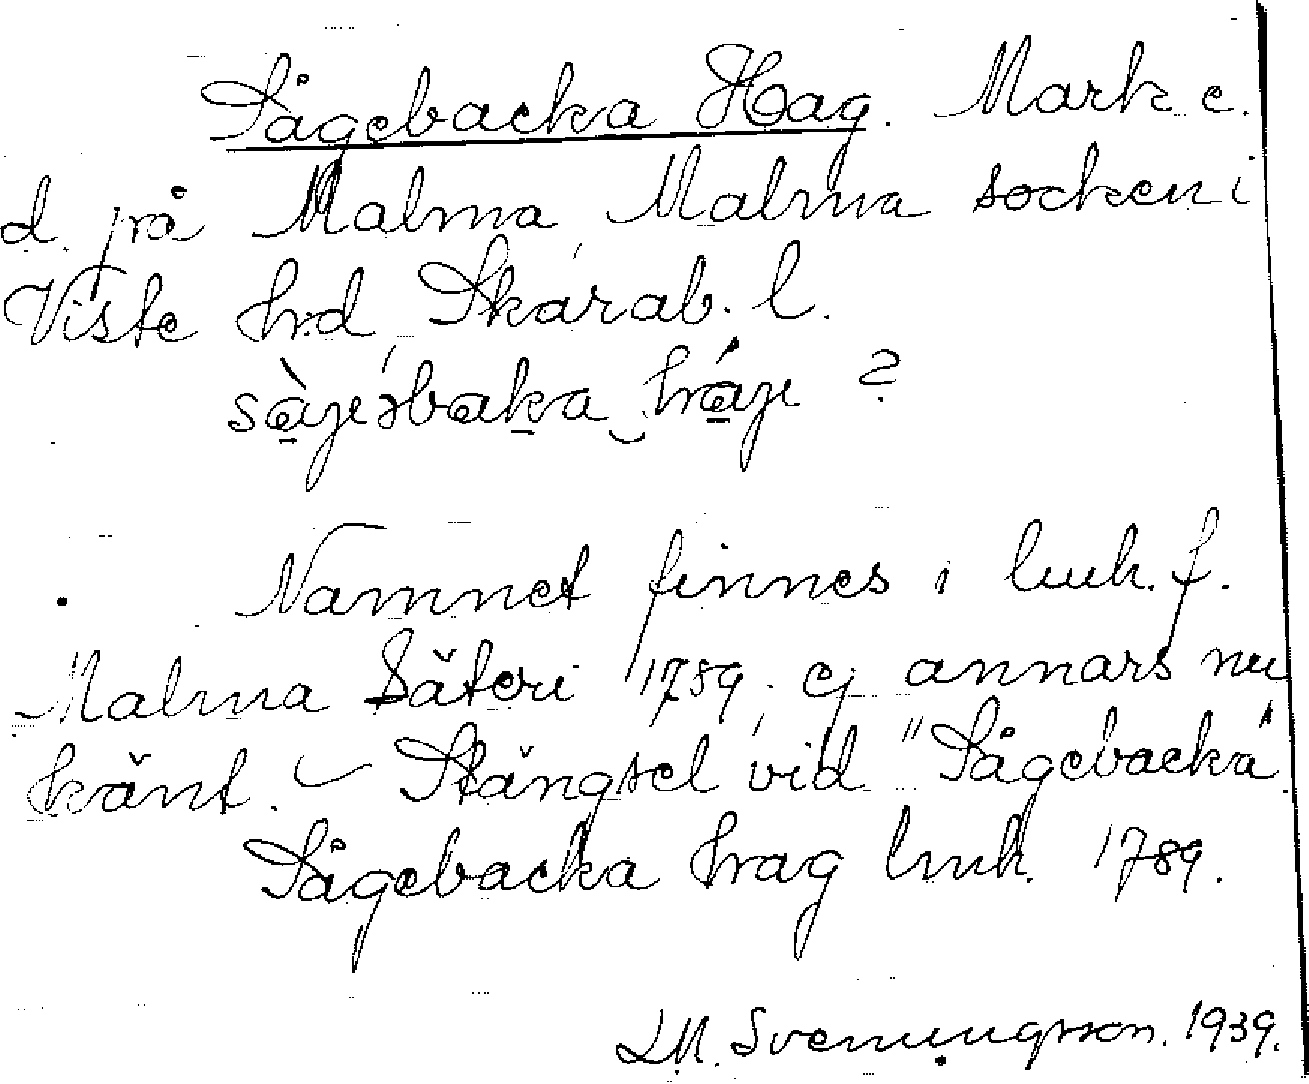 Sågebacka Hag. Mark e.
d. på Malma, Malma socken i
Viste hrd, Skarab. l.
sàjesbaka háje ?
Namnet finnes i lmh. f.
Malma Säteri 1789. ej annars nu
känt. – Stängsel vid "Sågebacka"
Sågebacka hag lmh. 1789.
LM. Svenungsson. 1939.